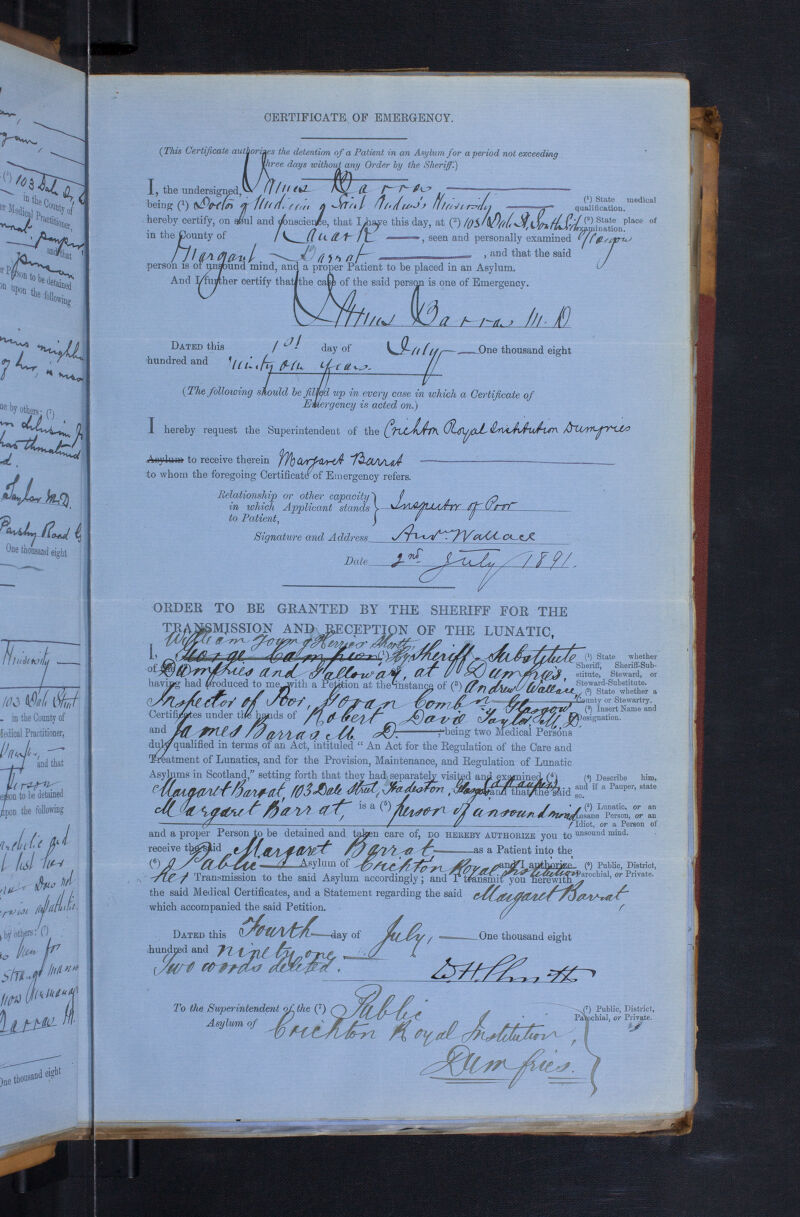 CERTIFICATE OF EMERGENCY.
(This Certificate authorizes the detention of a Patient in an Asylum for a period not exceeding
three days without any Order by the Sheriff.)
I, the undersigned, James Barras
being (¹) Doctor of Medicine of Saint Andrew's University
(¹) State medical
qualification.
hereby certify, on soul and conscience, that I have this day, at (²) 103 Dale St, South Side
(²) State place of
examination.
in the County of Lanark, seen and personally examined
Glasgow
Margaret Barrat, and that the said
person is of unsound mind, and a proper Patient to be placed in an Asylum.
And I further certify that the case of the said person is one of Emergency.
James Barras M.D
DATED this 1st day of July One thousand eight
hundred and ninety one years.
(The following should be filled up in every case in which a Certificate of
Emergency is acted on.)
I hereby request the Superintendent of the Crichton Royal Institution Dumfries
Asylum to receive therein Margaret Barrat
to whom the foregoing Certificate of Emergency refers.
Relationship or other capacity
in which Applicant stands
to Patient,
Inspector of Poor
Signature and Address Andw. Wallace
Date 2nd July 1891.
ORDER TO BE GRANTED BY THE SHERIFF FOR THE
TRANSMISSION AND RECEPTION OF THE LUNATIC,
William Young Herries
I, George Campion, (¹) Sheriff-Substitute
(¹) State whether
Sheriff, Sheriff-Sub-
stitute, Steward, or
Steward-Substitute.
of Dumfries and Galloway, at Dumfries,
having had produced to me, with a Petition at the instance of (²) Andrew Wallace,
(²) State whether a
County or Stewartry.
Inspector of Poor, Govan Combn Glasgow
(³) Insert Name and
Designation.
Certificates under the hands of Robert David Taylor, M.D.
and James Barras M.D. being two Medical Persons
duly qualified in terms of an Act, intituled "An Act for the Regulation of the Care and
Treatment of Lunatics, and for the Provision, Maintenance, and Regulation of Lunatic
Asylums in Scotland," setting forth that they had separately visited and examined (⁴)
(⁴) Describe him,
and if a Pauper, state
so.
Margaret Barrat, 103 Dale Street, Tradeston, Glasgow (a Pauper) and that the said
Margaret Barrat, is a (⁵) person of unsound mind
(⁵) Lunatic, or an
Insane Person, or an
Idiot, or a Person of
unsound mind.
and a proper Person to be detained and taken care of, DO HEREBY AUTHORIZE you to
receive the said Margaret Barrat as a Patient into the
(⁶) Public Asylum of Crichton Royal Institution and I authorize
(⁶) Public, District,
Parochial, or Private.
her Transmission to the said Asylum accordingly; and I transmit you herewith
the said Medical Certificates, and a Statement regarding the said Margaret Barrat,
which accompanied the said Petition.
DATED this Fourth day of July, One thousand eight
hundred and ninety one
Two words deleted.
To the Superintendent of the (⁷) Public
(⁷) Public, District,
Parochial, or Private.
Asylum of Crichton Royal Institution,
Dumfries.
(¹) 103 Dale St,
in the County of
Medical Practitioner,
pauper,
and that
person
Person to be detained
upon the following
by others; (¹)
Taylor M.D.
Paisley Road
One thousand eight
University
103 Dale Street
in the County of
Medical Practitioner,
and that
person
person to be detained
upon the following
by others: (¹)
Barras M.
One thousand eight